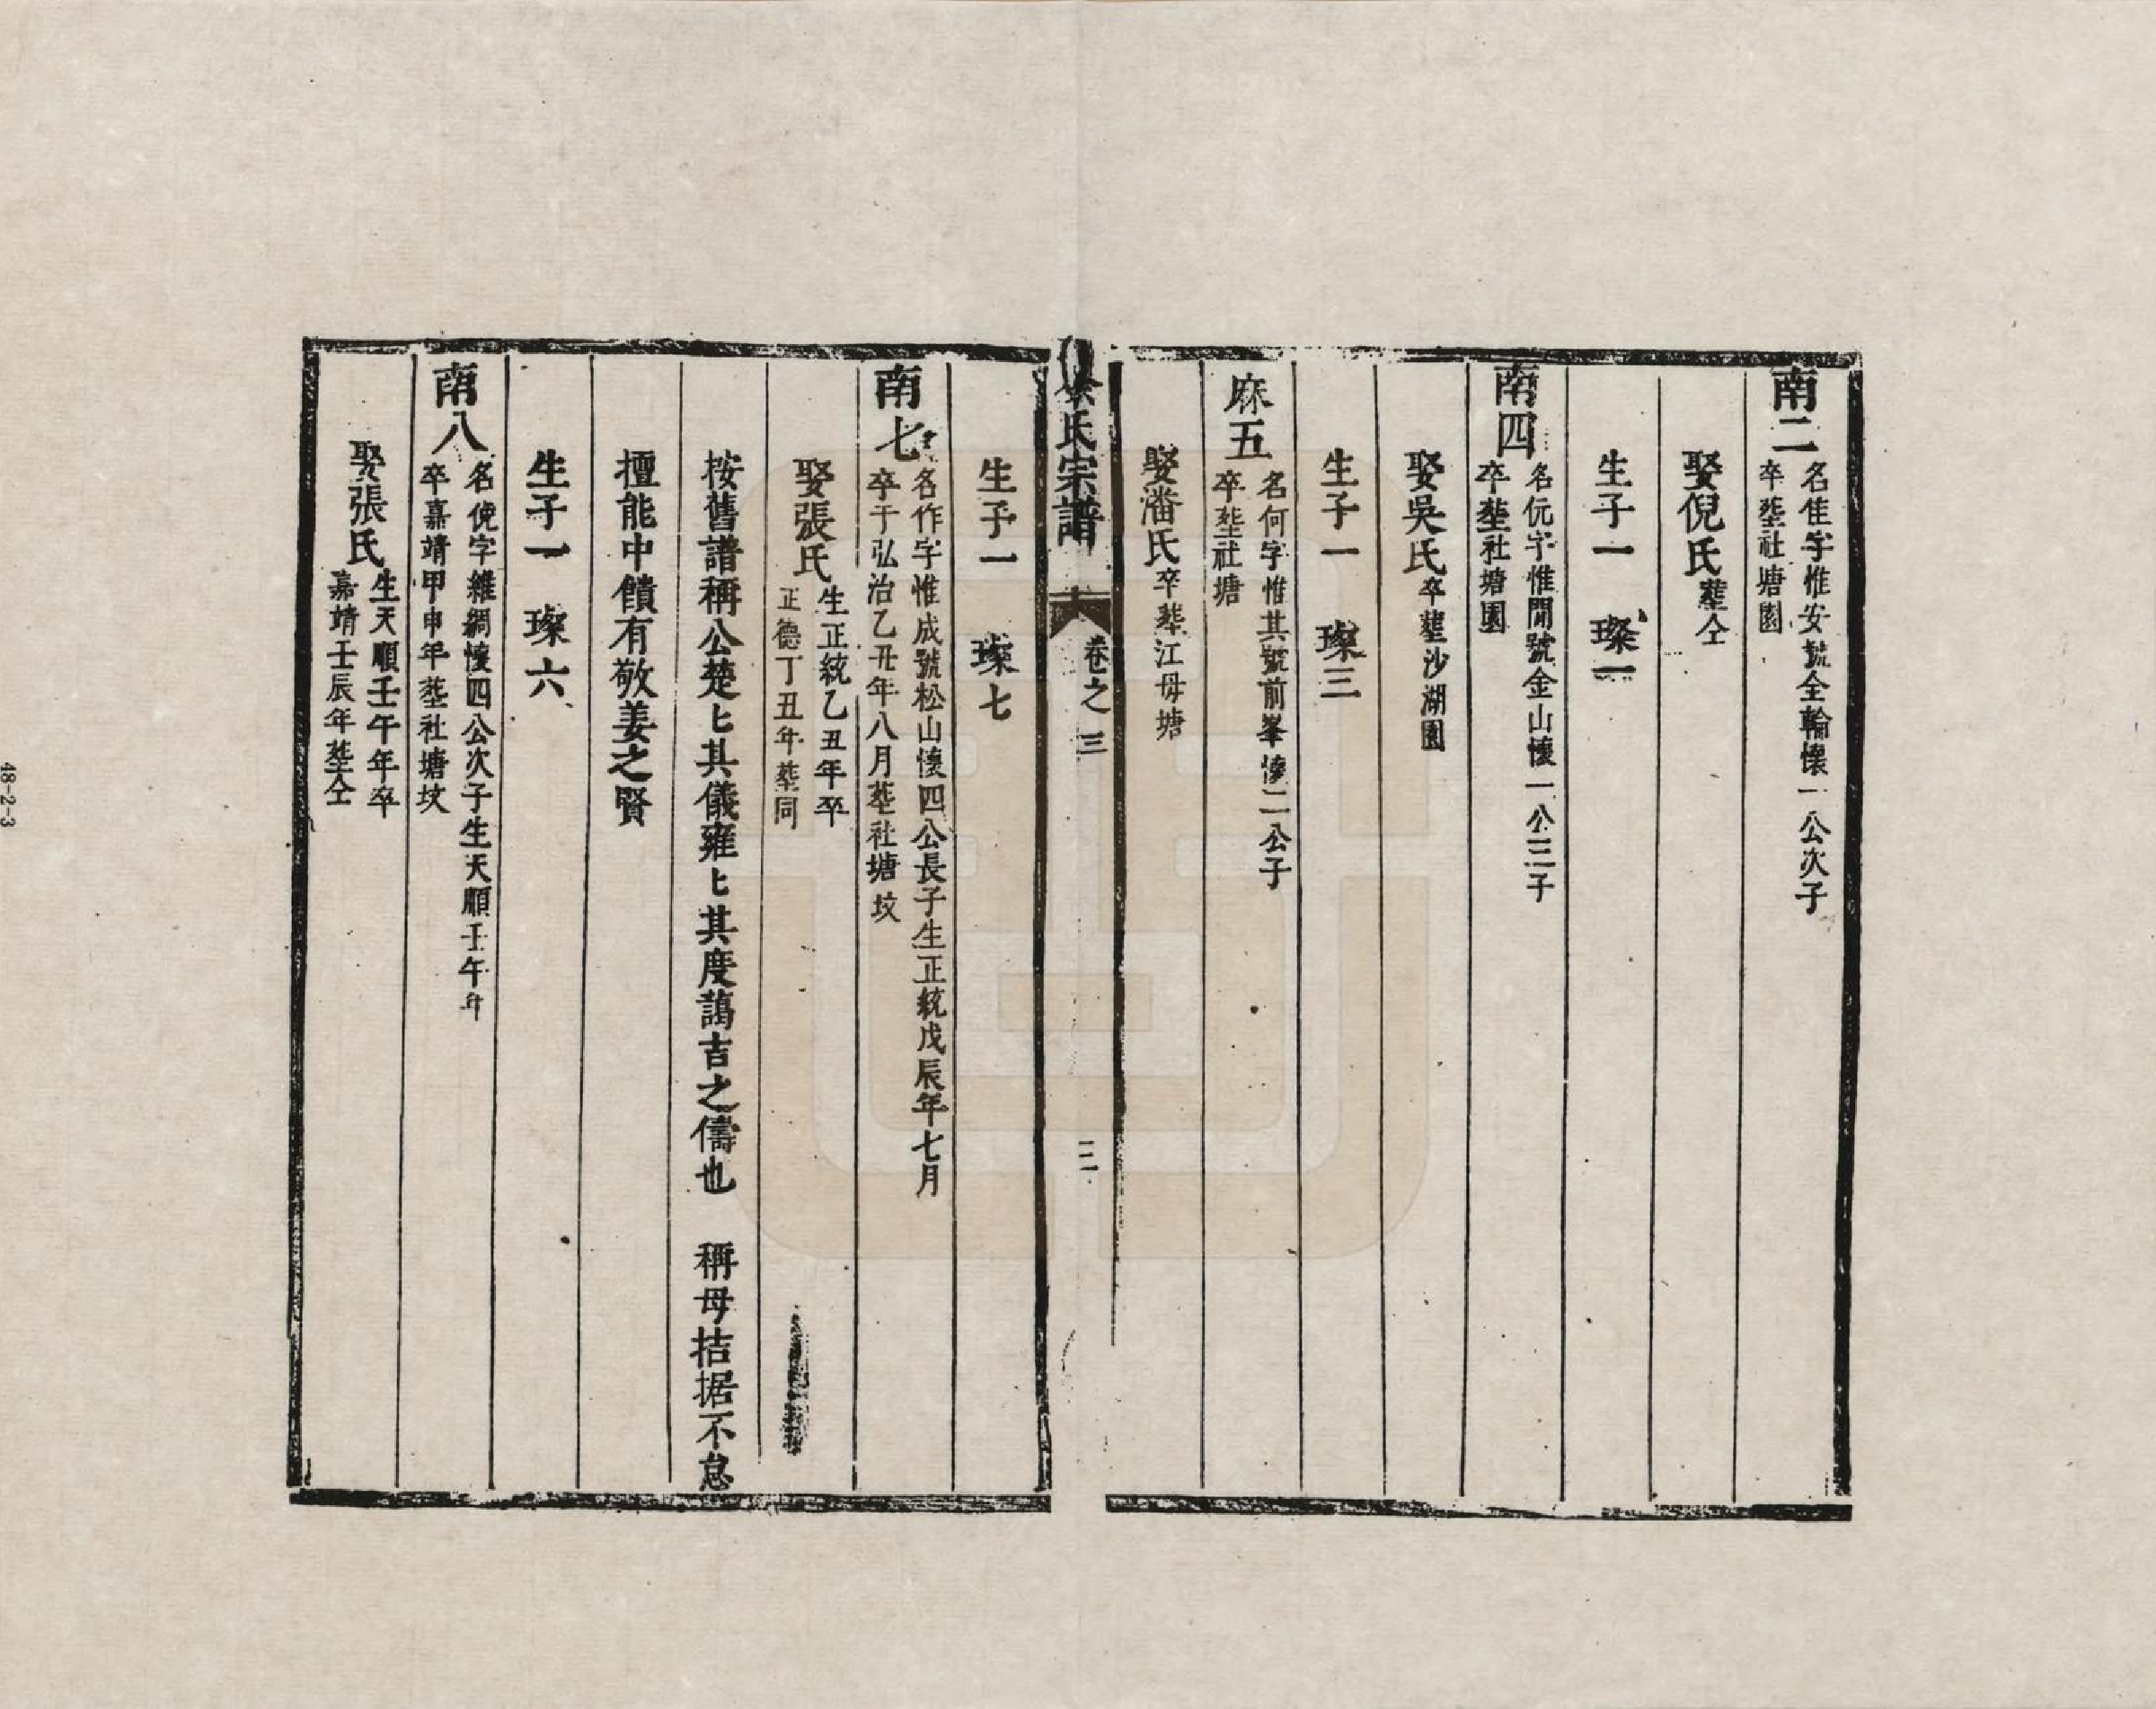 南二
名佳字惟安號全輪懷一公次子
卒塟社塘園
娶倪氏塟仝
生子一　璨一
南四
名伉字惟閒號金山懷一公三子
卒塟社塘園
娶吳氏卒塟沙湖園
生子一　璨三
麻五
名何字惟其號前峯懷二公子
卒塟社塘
娶潘氏卒塟江母塘
氏宗譜　卷之三　二
生子一　璨七
南七
名作字惟成號松山懷四公長子生正統戊辰年七月
卒于弘治乙丑年八月塟社塘坟
娶張氏
生正統乙丑年卒
正德丁丑年塟同
按舊譜稱公楚匕其儀雍匕其度藹吉之儔也　稱母拮据不怠
擅能中饋有敬姜之賢
生子一　璨六
南八
名俛字維綱懷四公次子生天順壬午年
卒嘉靖甲申年塟社塘坟
娶張氏
生天順壬午年卒
嘉靖壬辰年塟仝
48-2-3